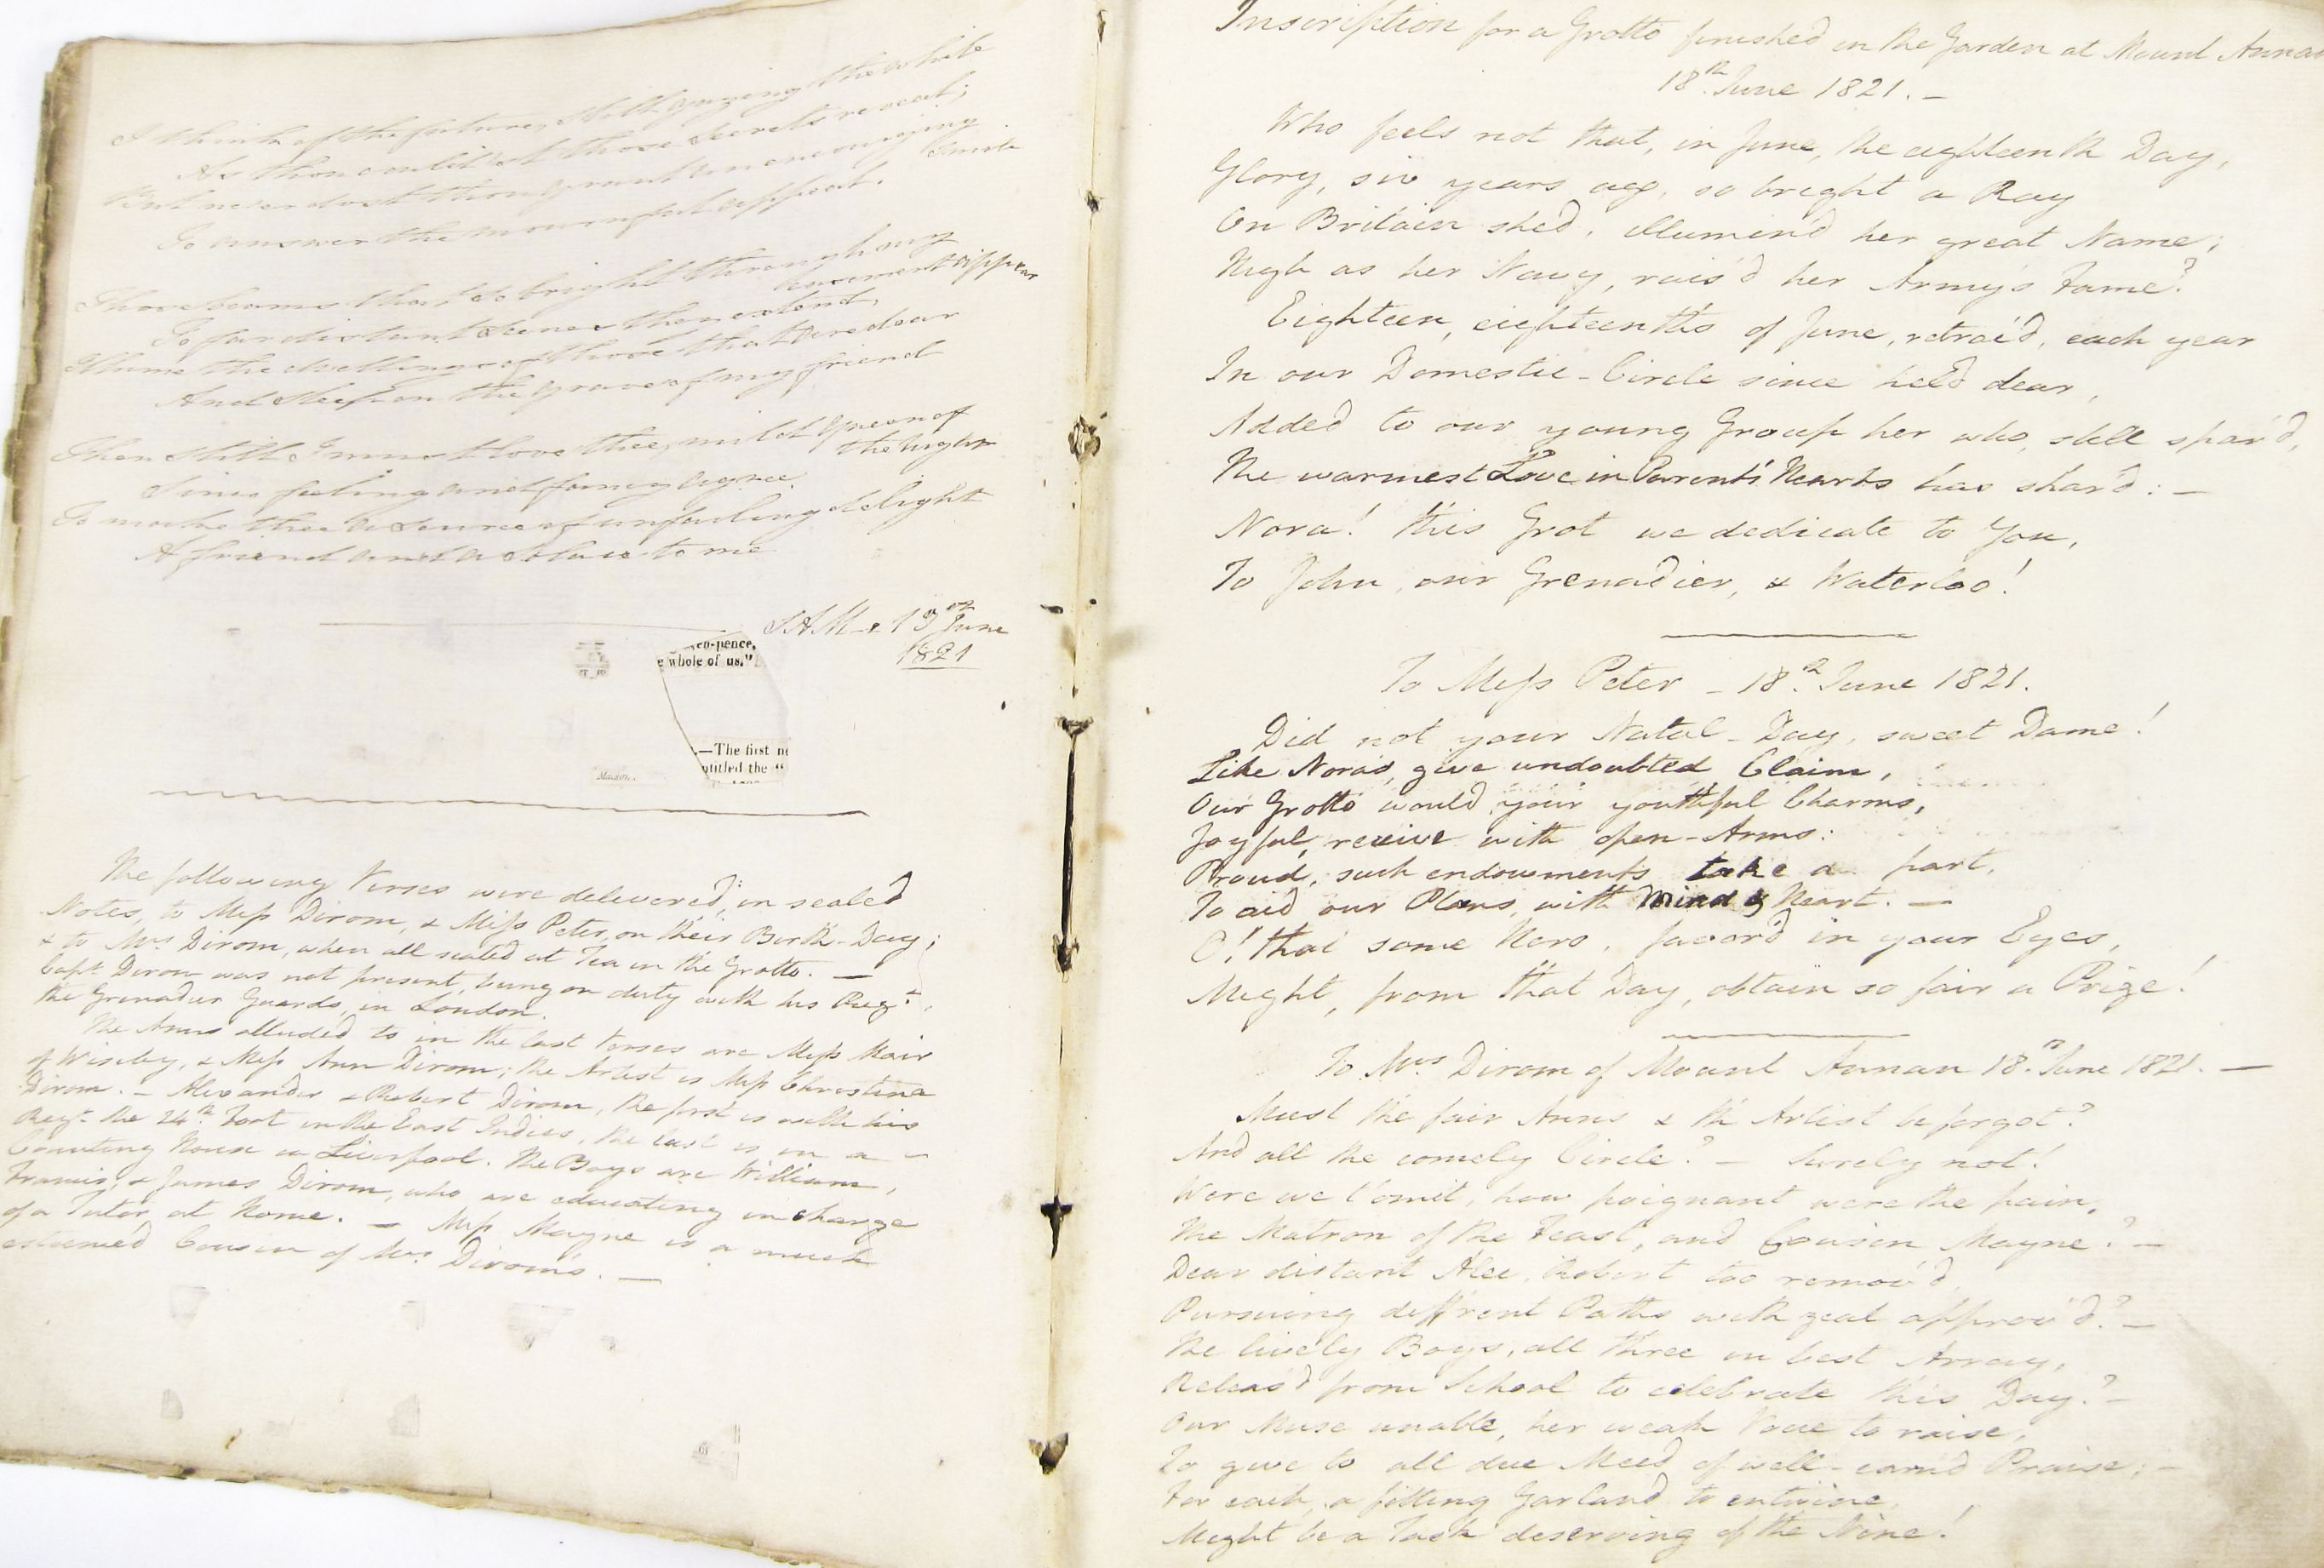 I think of the future, still gazing the while
As thou could'st those secrets reveal;
But never dost thou grant an encouraging smile
To answer the mournful appeal.
Those beams that so bright through my casement appear
To far distant scenes then extend,
Illume the dwellings of those that are dear
And sleep on the grave of my friend
Then still I must love thee, mild Queen of the night
Since feeling and fancy agree
To make thee a source of unfailing delight
A friend and a solace to me
SAM 19th June
1821
co-pence,
e whole of us."
.—The first n
ntitled the "
The following Verses were delivered, in sealed
Notes, to Miss Dirom, & Miss Peter, on their Birth-Day;
& to Mrs Dirom, when all seated at Tea in the Grotto. —
Capt. Dirom was not present, being on duty with his Regt.
the Grenadier Guards, in London.
The Anns alluded to in the last Verses are Miss Mair
of Wiseby, & Miss Ann Dirom; the Artist is Miss Christina
Dirom. — Alexander & Robert Dirom, the first is with his
Regt. the 24th Foot in the East Indies, the last is in a
Counting House in Liverpool. The Boys are William,
Francis, & James Dirom, who are educating in charge
of a Tutor, at Home. — Miss Mayne is a much
esteemed Cousin of Mrs Dirom's. —
Inscription for a Grotto finished in the Garden at Mount Annan
18th June 1821. —
Who feels not that, in June, the eighteenth Day,
Glory, six years ago, so bright a Ray
On Britain shed, illumin'd her great Name;
High as her Navy, rais'd her Army's Fame?
Eighteen, eighteenths of June, retrac'd, each year
In our Domestic-Circle since held dear,
Added to our young Group her who, still spar'd,
The warmest Love in Parents' Hearts has shar'd: —
Nora! this Grot we dedicate to You,
To John, our Grenadier, & Waterloo!
To Miss Peter — 18th June 1821.
Did not your Natal-Day, sweet Dame!
Like Nora's, give undoubted Claim,
Our Grotto would your youthful Charms,
Joyful, receive with open-Arms:
Proud, such endowments take a part,
To aid our Plans, with Mind & Heart. —
O! that some Hero, favor'd in your Eyes,
Might, from that Day, obtain so fair a Prize!
To Mrs Dirom of Mount Annan 18th June 1821. —
Must the fair Anns & th' Artist be forgot?
And all the comely Circle? — Surely not!
Were we t'omit, how poignant were the pain,
The Matron of the Feast, and Cousin Mayne? —
Dear distant Alec, Robert too remov'd,
Pursuing diff'rent Paths with zeal approv'd? —
The lively Boys, all three in best Array,
Releas'd from School to celebrate this Day? —
Our Muse unable, her weak Voice to raise,
To give to all due Meed of well-earn'd Praise; —
For each, a fitting Garland to entwine,
Might be a Task deserving of the Nine!